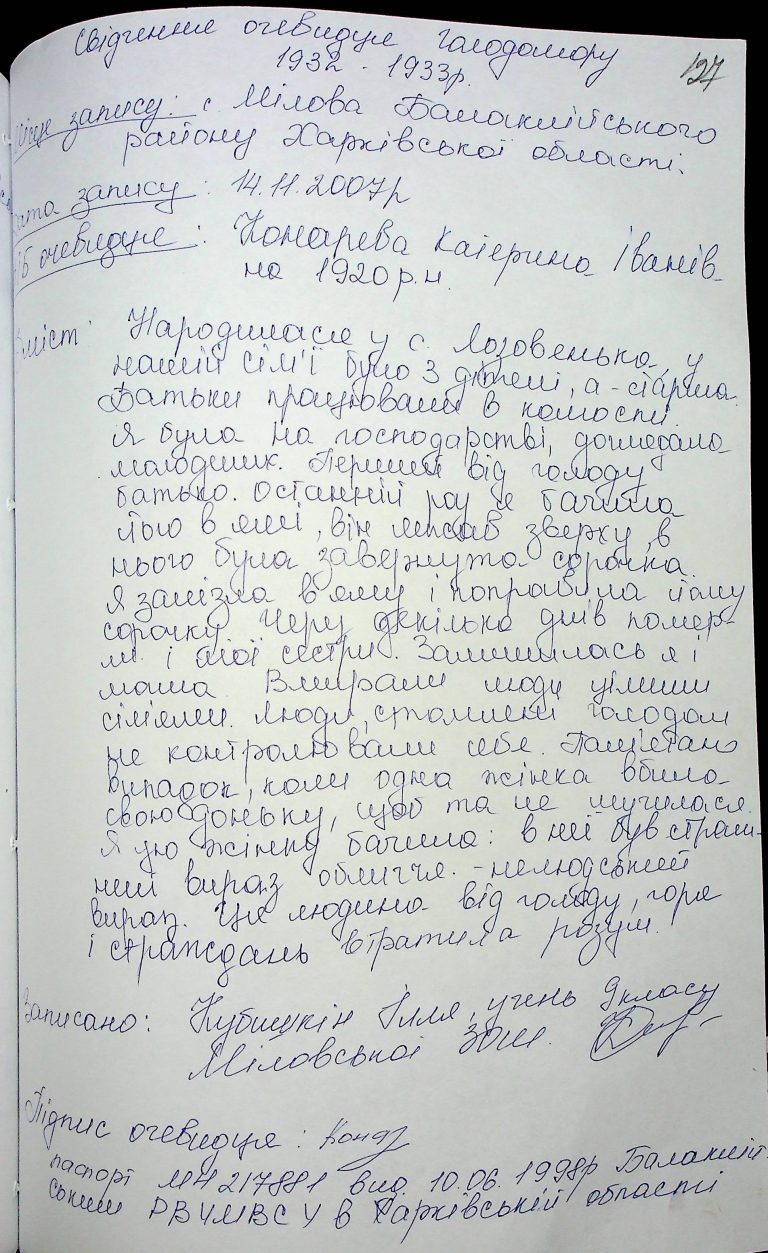 Свідчення очевидця голодомору
1932 - 1933р.
127
Місце запису: с Мілова Балаклійського
району Харківської області.
Дата запису: 14.11.2007р
ПІБ очевидця: Конарева Катерина Іванів-
на 1920р.н.
Зміст: Народилася у с. Лозовенька, у
нашій сім'ї було 3 дітей, а - старша.
Батьки працювали в колоспі.
Я була на господарстві, доглядала
молодших. Перший від голоду
батько. Останній раз я бачила
його в ямі, він лежав зверху, в
нього була завернута сорочка.
Я залізла в яму і поправила йому
сорочку. Через декілька днів помер-
ли і мої сестри. Залишилась я і
мама. Вмирали люди цілими
сім'ями. Люди, стомлені голодом
не контролювали себе. Пам'ятаю
випадок, коли одна жінка вбила
свою доньку, щоб та не мучилася.
Я цю жінку бачила: в неї був страш-
ний вираз обличчя - нелюдський
вираз. Ця людина від голоду, горя
і страждань втратила розум.
Записано: Кубишкін Ілля, учень 9 класу
Міловської ЗОШ.
Підпис очевидця:
паспорт МН 217881 вид. 10.06.1998р Балаклій-
ським РВУМВСУ в Харківській області